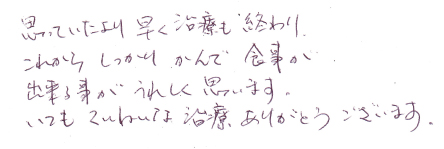 思っていたより早く治療も終わり、
これから しっかり かんで 食事が
出来る事が うれしく思います。
いつも ていねいな 治療 ありがとう ございます。